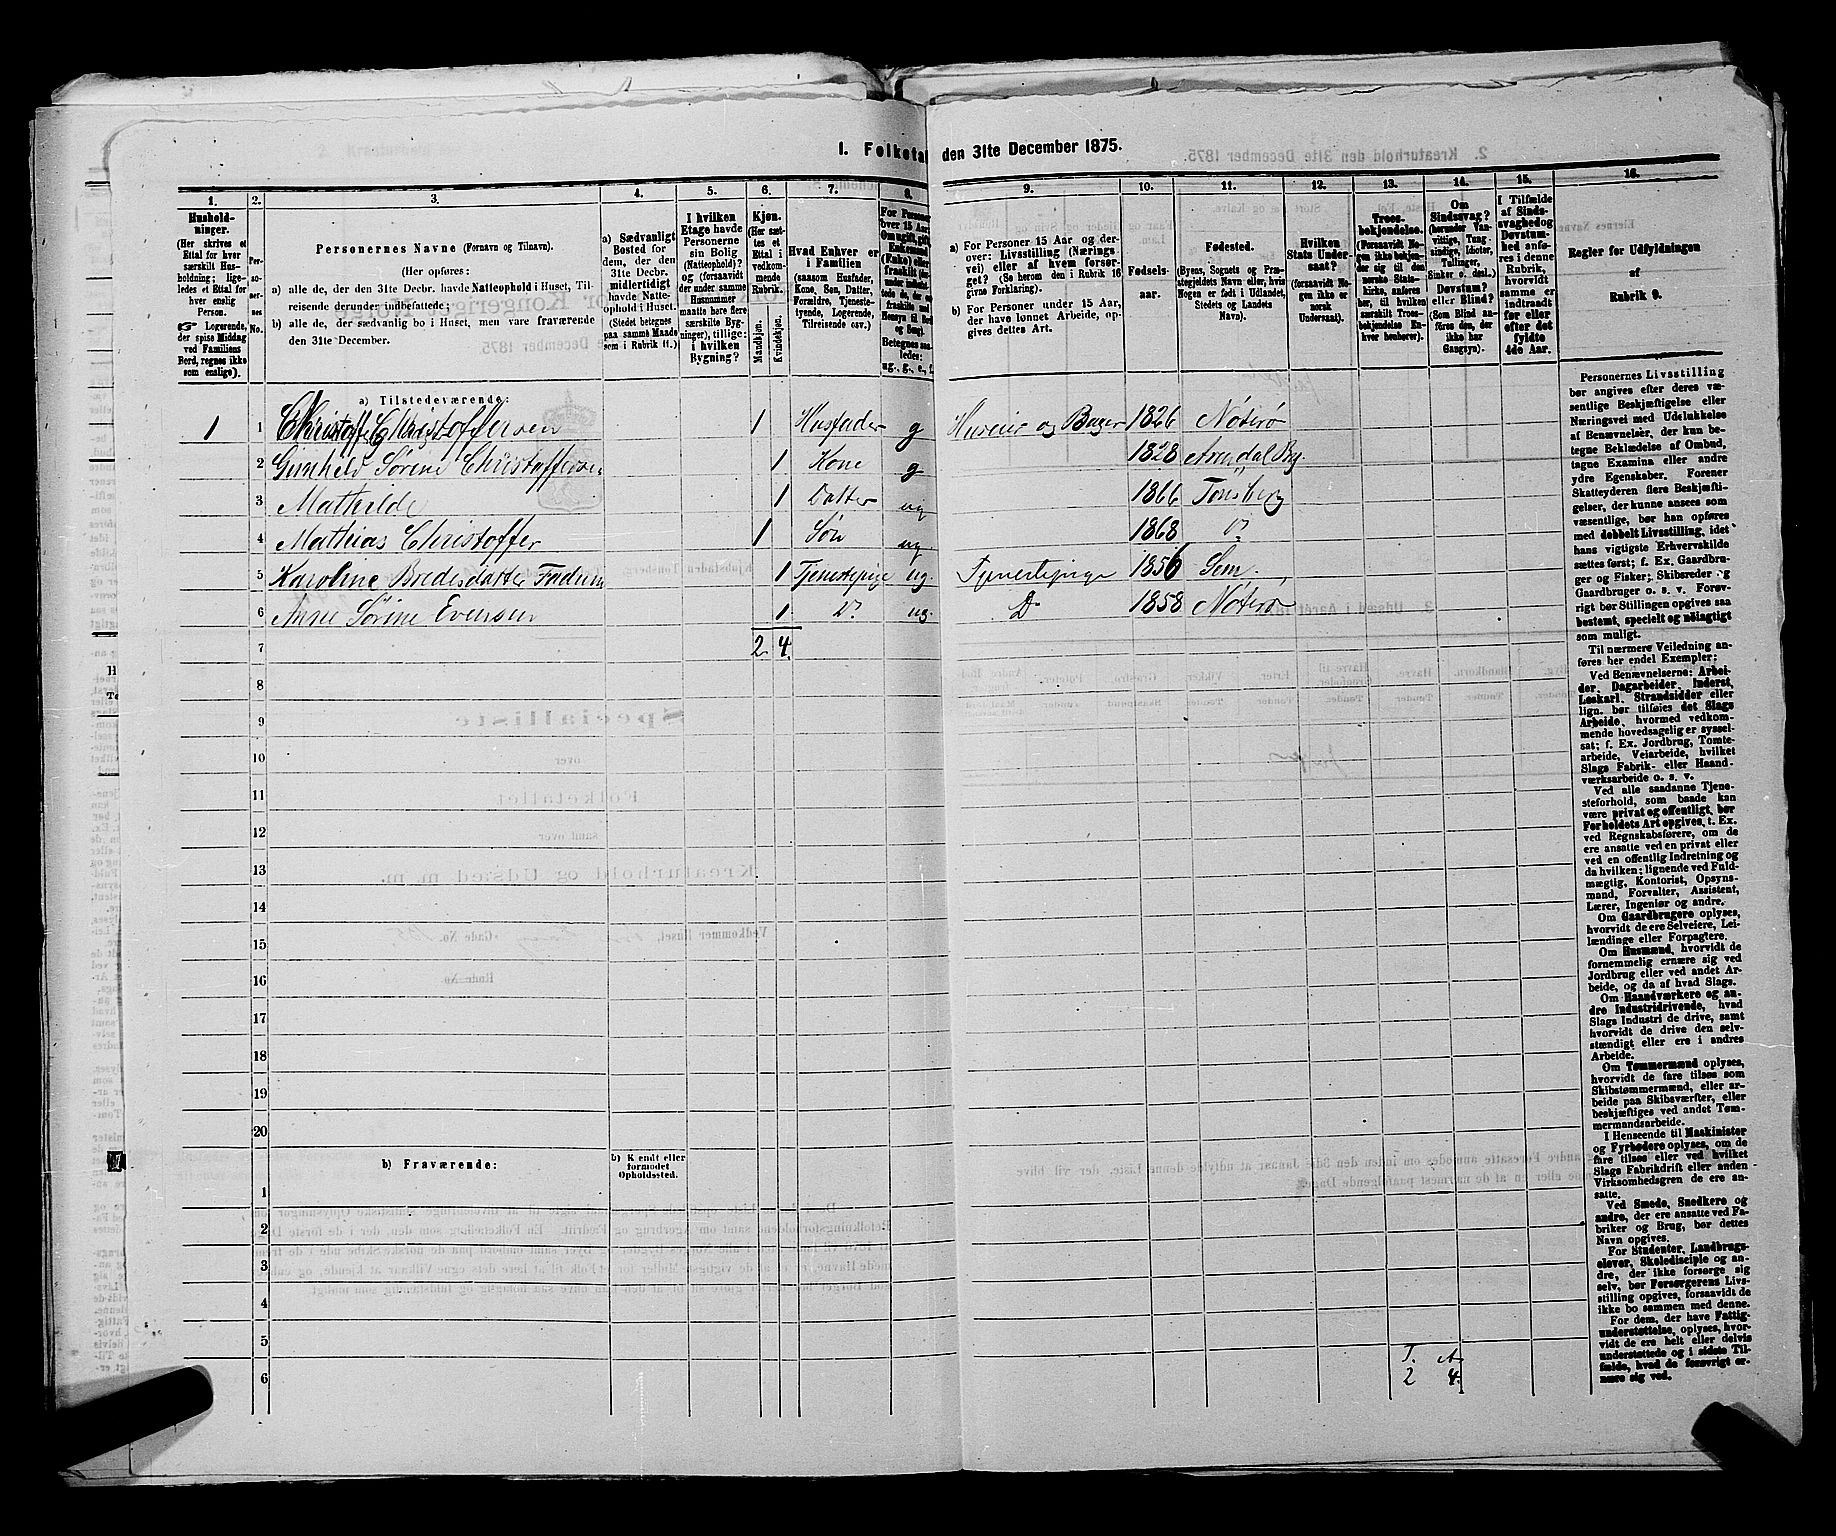 1. Folketal den 31te December 1875.
1. 2. 3. 4. 5. 6. 7. 8. 9. 10. 11. 12. 13. 14. 15. 16.
Hushold-
ninger.
(Her skrives et
Ettal for hver
særskilt Hus-
holdning; lige-
ledes et Ettal for
hver enslig
Person.
☞ Logerende,
der spise Middag
ved Familiens
Bord, regnes ikke
som enslige).
Per-
so-
ner-
nes
No.
Personernes Navne (Fornavn og Tilnavn).
(Her opføres:
a) alle de, der den 31te Decbr. havde Natteophold i Huset, Til-
reisende derunder indbefattede;
b) alle de, der sædvanlig bo i Huset, men vare fraværende
den 31te December.
a) Sædvanligt
Bosted for
dem, der den
31te Decbr.
midlertidigt
havde Natte-
ophold i Huset.
(Stedet betegnes
paa samme Maade
som i Rubrik 11.)
I hvilken
Etage havde
Personerne
sin Bolig
(Natteophold)?
og (forsaavidt
der under samme
Husnummer
maatte høre flere
særskilte Byg-
ninger), tillige:
i hvilken
Bygning?
Kjøn.
(Her sæt-
tes et
Ettal i
vedkom-
mende
Rubrik.
Mandkjøn.
Kvindekjøn.
Hvad Enhver er
i Familien
(saasom Husfader,
Kone, Søn, Datter,
Forældre, Tjeneste-
tyende, Logerende,
Tilreisende osv.)
For Personer
over 15 Aar
Betegnes saa-
ledes:
ug., g., e., f.
a) For Personer 15 Aar og der-
over: Livsstilling (Nærings-
vei) eller af hvem forsør-
get? (Se herom den i Rubrik 16
givne Forklaring).
b) For Personer under 15 Aar,
der have lønnet Arbeide, op-
gives dettes Art.
Fødsels-
aar.
Fødested.
(Byens, Sognets og Præ-
stegjeldets Navn eller, hvis
Nogen er født i Udlandet,
Stedets og Landets
Navn).
Hvilken
Stats Under-
saat?
(forsaavidt No-
gen ikke er
norsk
Undersaat).
Troes-
bekjendelse.
(Forsaavidt No-
gen ikke bekjen-
der sig til den
norske Stats-
kirke, anføres
her, til hvilken
særskilt Troes-
bekjendelse En-
hver henhører).
Om
Sindssvag?
(herunder Van-
vittige, Tung-
sindige, Idioter,
Tullinger,
Sinker o. desl.)
Døvstum?
eller Blind?
(Som Blind an-
føres den, der
ikke har
Gangsyn).
I Tilfælde
af Sinds-
svaghed og
Døvstum-
hed anfø-
res i denne
Rubrik,
hvorvidt
samme er
indtraadt
før eller
efter det
fyldte
4de Aar.
Regler for Udfyldningen
af
Rubrik 9.
a) Tilstedeværende:
1 1 Christoffer Christoffersen 1 Husfader g Huseier og Bager 1826 Nøterø
2 Gunhild Sørine Christoffersen 1 Kone g 1828 Arendal By.
3 Mathilde 1 Datter ug 1866 Tønsberg
4 Mathias Christoffer 1 Søn ug. 1868 D?
5 Karoline Bredesdatter Fadum 1 Tjenestepige ug. Tjenestepige 1856 Sem
6 Anne Sørine Evensen 1 D? ug. D 1858 Nøterø
7 2 4
8
9
10
11
12
13
14
15
16
17
18
19
20
b) Fraværende:
b) Kjendt eller
formodet
Opholdssted.
1
2
3
4
5
6
T. A
2 4
Personernes Livsstilling
bør angives efter deres væ-
sentlige Beskjæftigelse eller
Næringsvei med Udelukkelse
af Benævnelser, der kun be-
tegne Beklædelse af Ombud,
tagne Examina eller andre
ydre Egenskaber. Forener
Skatteyderen flere Beskjæfti-
gelser, der kunne ansees som
væsentlige, bør han opføres
med dobbelt Livsstilling, idet
hans vigtigste Erhvervskilde
sættes først; f. Ex. Gaardbru-
ger og Fisker; Skibsreder og
Gaardbruger o. s. v. Forøv-
rigt bør Stillingen opgives saa
bestemt, specielt og nøiagtigt
som muligt.
Til nærmere Veiledning an-
føres her endel Exempler:
Ved Benævnelserne: Arbei-
der, Dagarbeider, Inderst,
Løskarl, Strandsidder eller
lign. bør tilføies det Slags
Arbeide, hvormed vedkom-
mende hovedsagelig er syssel-
sat; f. Ex. Jordbrug, Tomte-
arbeide, Veiarbeide, hvilket
Slags Fabrik- eller Haand-
værksarbeide o. s. v.
Ved alle saadanne Tjene-
steforhold, som baade kan
være privat og offentligt, bør
Forholdets Art opgives, t. Ex.
ved Regnskabsførere, om de
ere ansatte ved en privat eller
ved en offentlig Indretning og
da hvilken; lignende ved Fuld-
mægtig, Kontorist, Opsyns-
mand, Forvalter, Assistent,
Lærer, Ingeniør og andre.
Om Gaardbrugere oplyses,
hvorvidt de ere Selveiere, Lei-
lændinge eller Forpagtere.
Om Husmænd, hvorvidt de
fornemmelig ernære sig ved
Jordbrug eller ved andet Ar-
beide, og da af hvad Slags.
Om Haandværkere og an-
dre Industridrivende, hvad
Slags Industri de drive, samt
hvorvidt de drive den selv-
stændigt eller ere i andres
Arbeide.
Om Tømmermænd oplyses,
hvorvidt de fare tilsøs som
Skibstømmermænd, eller ar-
beide paa Skibsværfter, eller
beskjæftiges ved andet Tøm-
mermandsarbeide.
I Henseende til Maskinister
og Fyrbødere oplyses, om de
fare tilsøs eller ved hvilket
Slags Fabrikdrift eller anden
Virksomhedsgren de ere an-
satte.
Ved Smede, Snedkere og
andre, der ere ansatte ved Fa-
briker og Brug, bør dettes
Navn opgives.
For Studenter, Landbrugs-
elever, Skoledisciple og an-
dre, der ikke forsørge sig
selv, bør Forsørgerens Livs-
stilling opgives, forsaavidt de
ikke bo sammen med denne.
For dem, der have Fattig-
understøttelse, oplyses, hvor-
vidt de ere helt eller delvis
understøttede og i sidste Til-
fælde, hvad de forøvrigt er-
nære sig ved.